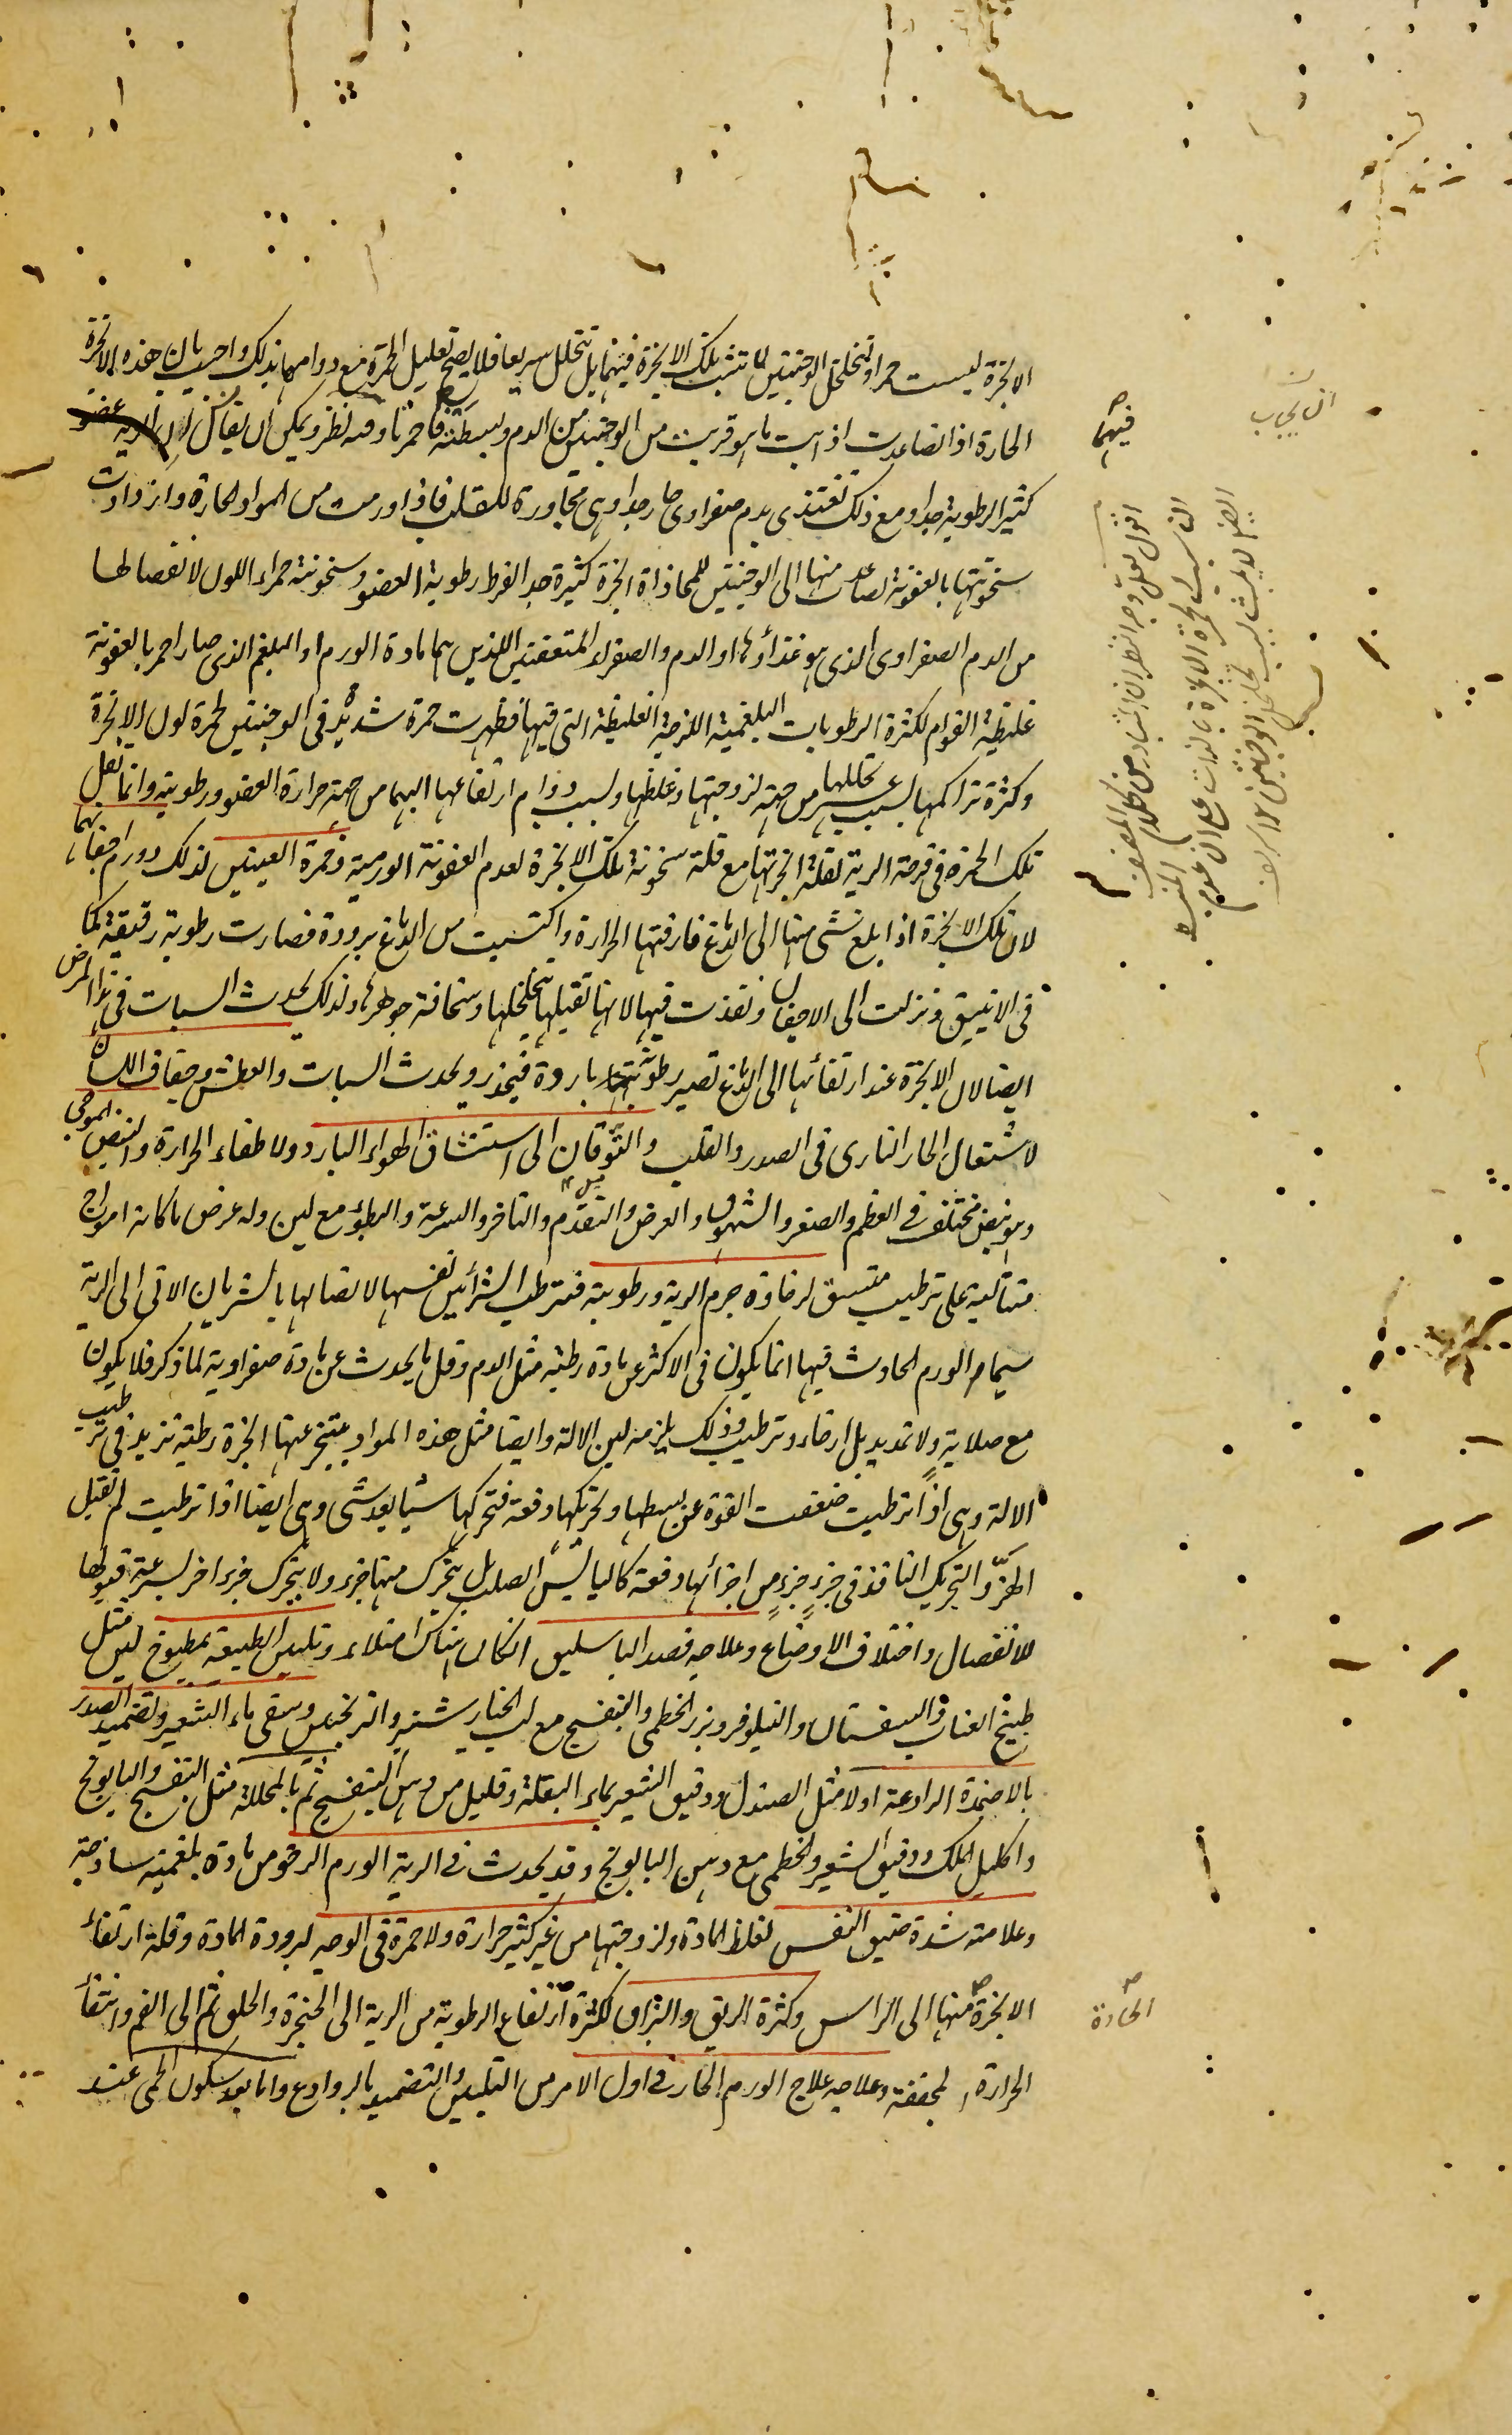 الابخرة ليست حمراء وتخلخل الوجنتين لما تتشبث تلك الابخرة فيهما بل تتحلل سريعا فلا يصح تعليل الحمرة مع دوامها بذلك واجيب بان هذه الابخرة
الحارة اذا تصاعدت اذابت ما هو قريب من الوجنتين من الدم وبسطته فاحمرتا وفيه نظر ويمكن ان يقال ان الرية عضو
كثير الرطوبة جدا ومع ذلك تغتذى بدم صفراوى حار جدا وهى مجاورة للقلب فاذا ورمت من المواد الحارة وازدادت
سخونتها بالعفونة تصاعدت منها الى الوجنتين للمحاذاة ابخرة كثيرة جدا لفرط رطوبة العضو وسخونته حمراء اللون لانفصالها
من الدم الصفراوى الذى هو غذاؤها او الدم والصفراء المتعفنتين اللذين هما مادة الورم او البلغم الذى صار احمر بالعفونة
غليظة القوام لكثرة الرطوبات البلغمية اللزجة الغليظة التى فيها فظهرت حمرة شديدة فى الوجنتين لحمرة لون الابخرة
وكثرة تراكمها لسبب عسر تحللها من جهة لزوجتها وغلظها ولسبب دوام ارتفاعها اليهما من جهة حرارة العضو ورطوبته وانما تقل
تلك الحمرة فى قرحة الرية لقلة ابخرتها مع قلة سخونة تلك الابخرة لعدم العفونة الورمية وحمرة العينين لذلك وورم اجفانهما
لان تلك الابخرة اذا بلغ شى منها الى الدماغ فارقتها الحرارة واكتسبت من الدماغ برودة فصارت رطوبة رقيقة كما
فى الانبيق ونزلت الى الاجفان ونفذت فيها لانها تقبلها لتخلخلها وسخافة جوهرها ولذلك يحدث السبات فى هذا المرض
ايضا لان الابخرة عند ارتقائها الى الدماغ تصير رطوبة باردة فيخدر ويحدث السبات والعطش وجفاف اللسان
لاشتعال الحار النارى فى الصدر والقلب والتوقان الى استنشاق الهواء البارد ولاطفاء الحرارة والنبض الموجى
وهو نبض مختلف فى العظم والصغر والشهوق والعرض والتقدم والتاخر والسرعة والبطؤ مع لين وله عرض ما كانه امواج
متتالية على ترتيب متسق لرخاوة جرم الرية ورطوبته فترطب الشرائين نفسها لاتصالها بالشريان الاتى الى الرية
سيما والورم الحادث فيها انما يكون فى الاكثر عن مادة رطبة مثل الدم وقل ما يحدث عن مادة صفراوية لما ذكر فلا يكون
مع صلابة ولا تمديد بل ارخاء وترطيب وذلك يلزمه لين الالة وايضا مثل هذه المواد يتبخر عنها ابخرة رطبة تزيد فى ترطيب
الالة وهى اذا ترطبت ضعفت القوة عن بسطها وتحريكها دفعة فتحركها شيئا بعد شى وهى ايضا اذا ترطبت لم تقبل
الهز والتحريك النافذ فى جزء جزء من اجزائها دفعة كاليابس الصلب بل يتحرك منها جزء ولا يتحرك جزء اخر لسرعة قبولها
للانفصال واختلاف الاوضاع وعلاجه فصد الباسليق ان كان هناك امتلاء وتليين الطبيعة بمطبوخ لين مثل
طبيخ العناب والسفستان والنيلوفر وبزر الخطمى والبنفسج مع لب الخيار شنبر والترنجبين وسقى ماء الشعير وتضميد الصدر
بالاضمدة الرادعة اولا مثل الصندل ودقيق الشعير بماء البقلة وقليل من دهن البنفسج ثم بالمحللة مثل البنفسج والبابونج
واكليل الملك ودقيق الشعير والخطمى مع دهن البابونج وقد يحدث فى الرية الورم الرخو من مادة بلغمية ساذجة
وعلامته شدة ضيق النفس لغلظ المادة ولزوجتها من غير كثير حرارة ولا حمرة فى الوجه لبرودة المادة وقلة ارتقاء
الابخرة منها الى الراس وكثرة الريق والبزاق لكثرة ارتفاع الرطوبة من الرية الى الحنجرة والحلق ثم الى الفم وانتفاء
الحرارة المجففة وعلاجه علاج الورم الحار فى اول الامر من التليين والتضميد بالروادع واما بعد سكون الحمى عند
فيهما
ان يجاب
اقول لعل وجه النظر ان المتبادر من كلام المصنف
ان سبب الحمرة الابخرة بالذات على ان عدم
الحارة